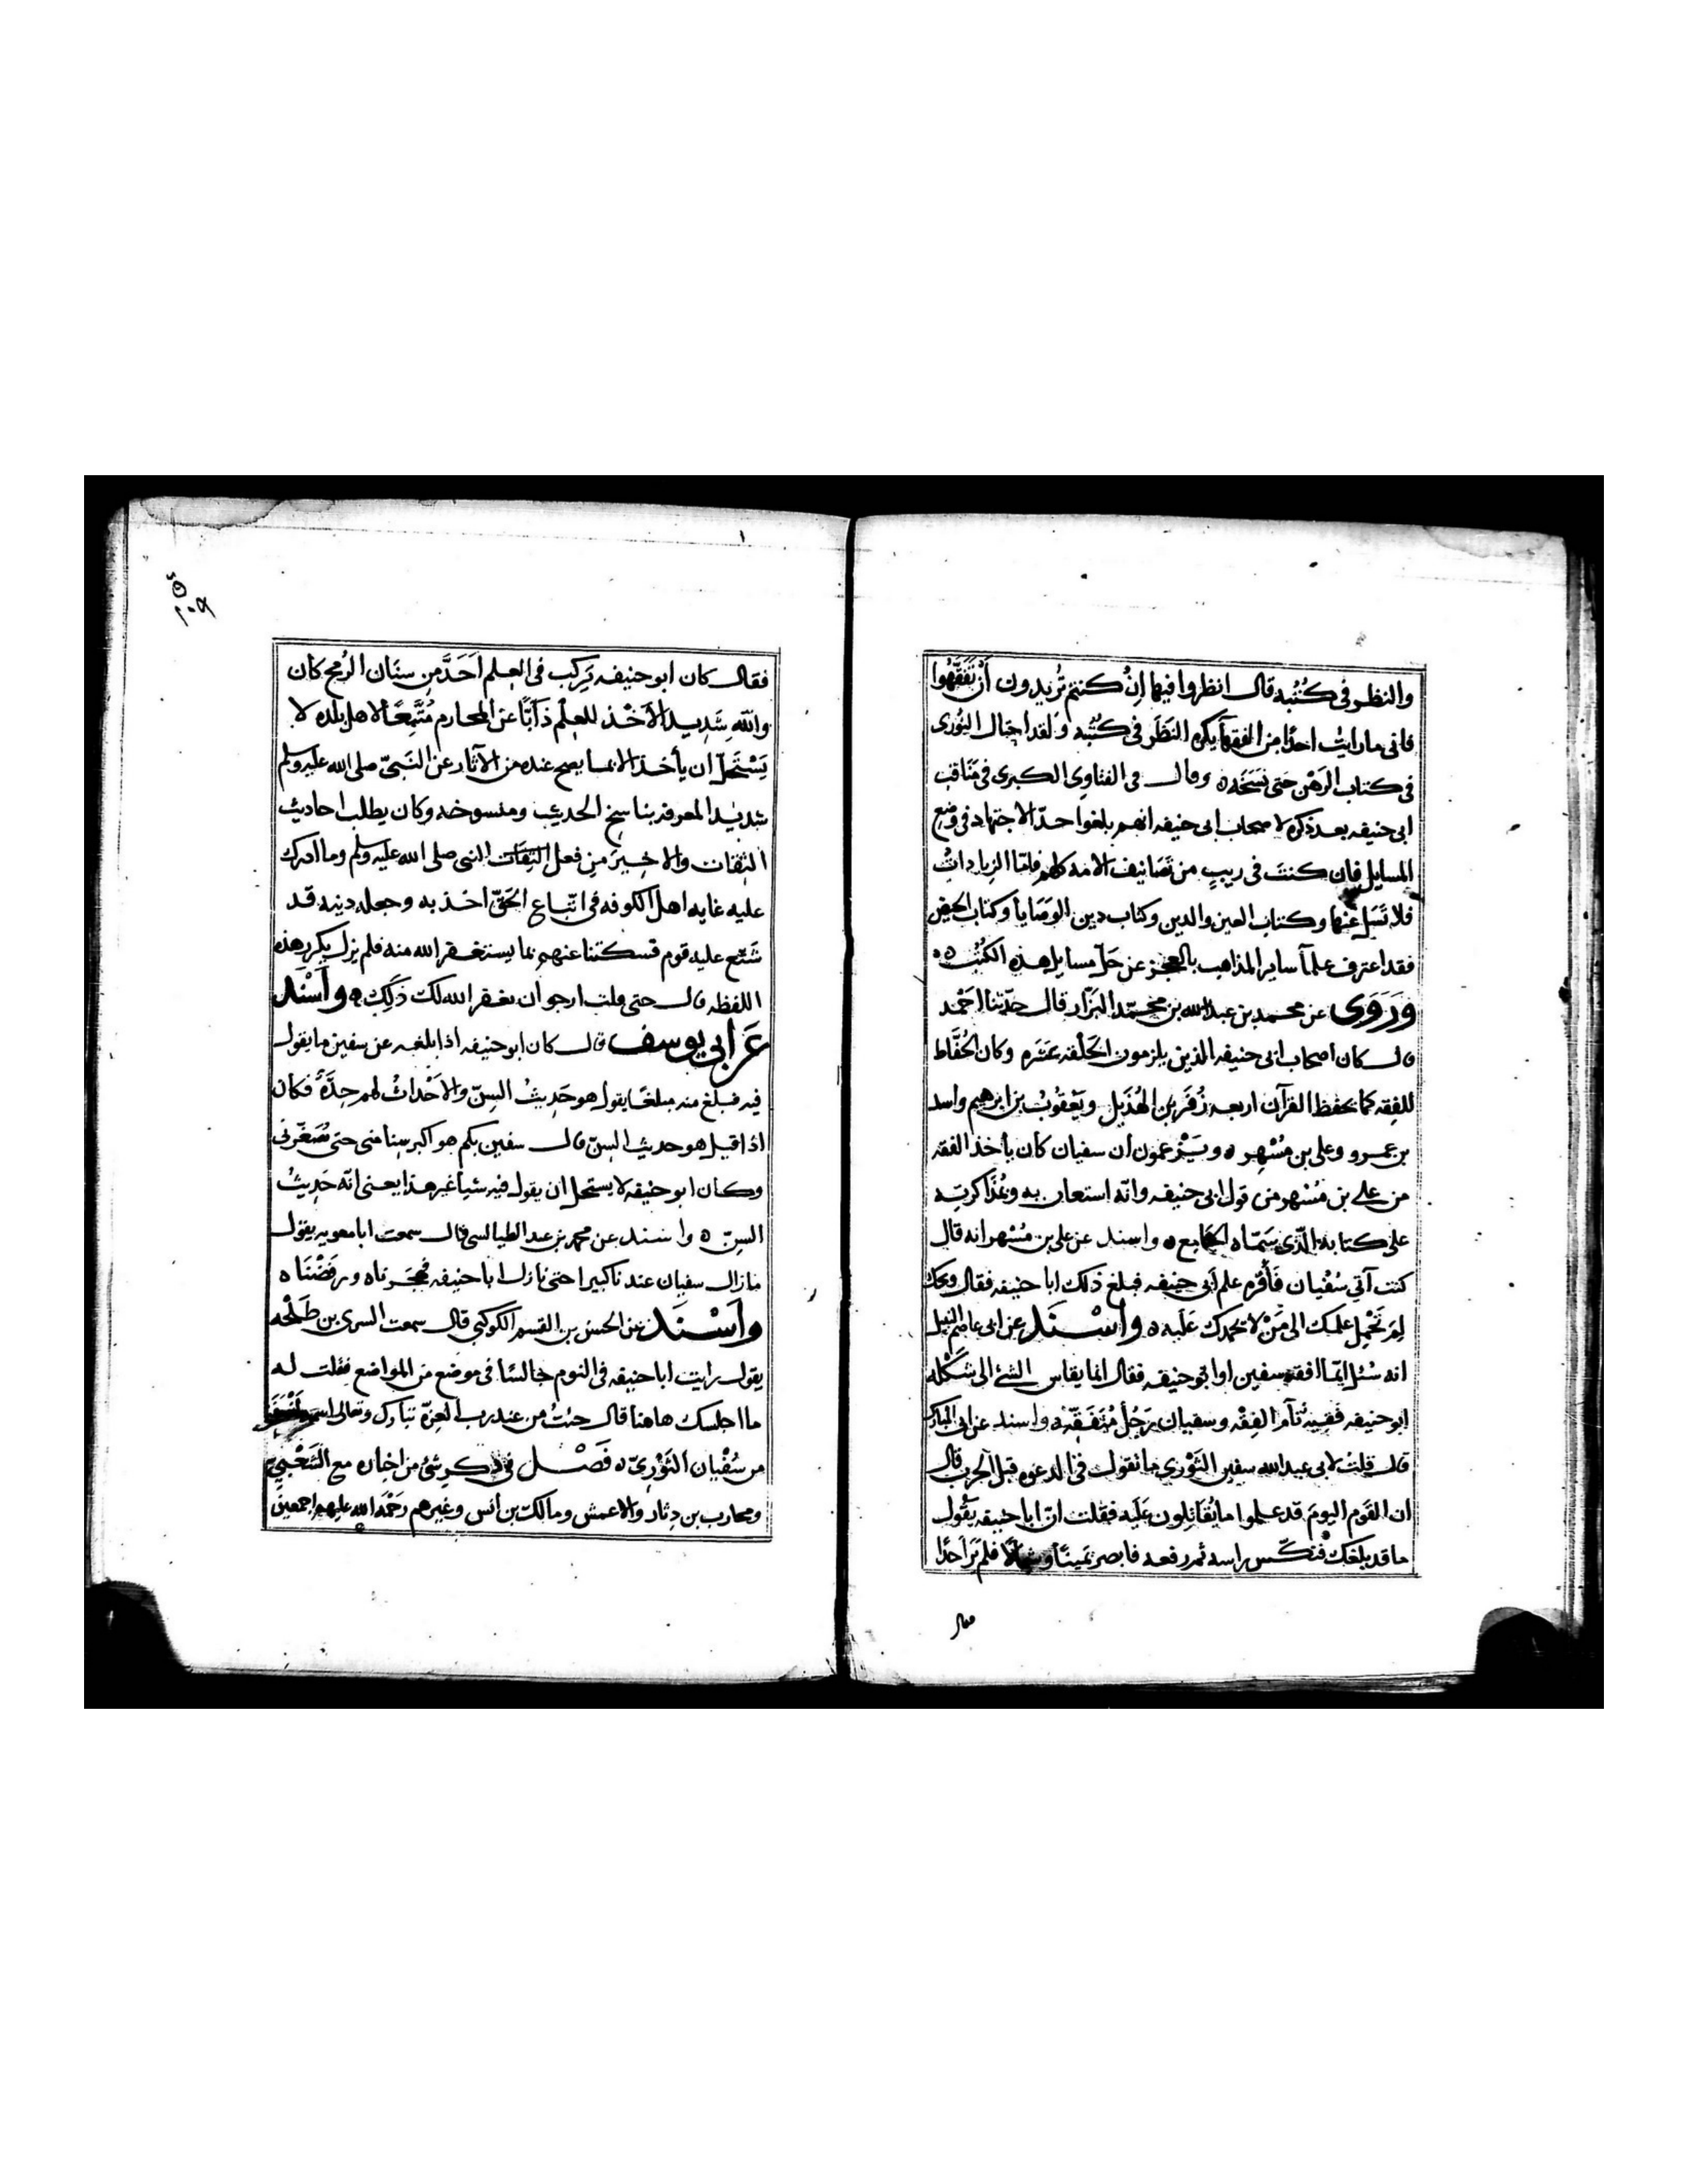 والنظر في كُتُبه قال انظروا فيها اِنْ كنتم تُريدون أنْ تَفَقَّهُوا
فاني ما رايتُ احدًا من الفقهآ يكره النَظَر في كُتُبه ولقد احتال الثورى
في كتاب الرَهْن حَتى نَسَخَه ٥ وقال في الفتاوي الكبرى في مَنَاقب
ابى حنيفه بعد ذكره لاصحاب ابى حنيفه انهم بلغوا حدّ الاجتهاد في وضع
المسايل فان كنتَ في ريبٍ من تَصَانيف الامه كلهم فامّا الزيادات
فلا تَسَل عنها وكتاب العين والدين وكتاب دين الوَصَايا وكتاب الحيض
فقد اعترف علمآ ساير المذاهب بالعجز عن حَلّ مسايل هذه الكتُب ٥٥
وَرَوَى عن محمد بن عبد الله بن محمّد البَزّار قال حدّثنا احْمد
قال كان اصحاب ابي حنيفه الذين يلزمون الحَلْقه عَشَره وكان الحُفّاظ
للفِقه كما يحفظ القرآن اربعه زُفَر بن الهُذَيل ويَعْقوبُ بن ابرهيم واسد
بن عمرو وعلى بن مُسْهِر ٥ ويَزْعمون ان سفيان كان يأخذ الفقه
من على بن مُسْهر من قول ابى حنيفه وانّه استعان به وبمُذَاكرته
على كتابه الّذى سَمّاه الجَامِع ٥ واسند عن على بن مُسْهر انه قال
كنت آتي سُفْيان فَأُفِرْم علم أبى حنيفه فبلغ ذلك ابا حنيفه فقال ويحك
لِمَ تَحْمِل علمك الى مَنْ لا يحمدك عَلَيه ٥ واسْنَد عن ابى عاصم النبيل
انه سُئل ايّما افقه سفين او ابو حنيفه فقال انما يقاس الشئ الى شَكْله
ابو حنيفه فَقيهٌ تَآم الفِقْه وسفيان رَجُلٌ مُتَفَقّه ٥ واسند عن ابن المبارك
قال قلتُ لابي عبد الله سفين الثَوْري ما تقول في الدعوه قبل الحرب قال
ان القَوم اليومَ قد علموا ما يُقَاتِلون عَلَيه فقلت انّ ابا حنيفه يَقُول
ما قد بلغك فنكّس راسه ثم رفعه فابصر يَمينًا وشمالًا فلم يَرَ اَحدًا
فقال
فقال كان ابو حنيفه يَركب في العِلم اَحَدَّ مِن سِنَان الرُمح كان
والله شديد الأخْذ للعِلْم ذَابًّا عن المحارم مُتَّبِعًا لاهل بلده لا
يَسْتَحلّ ان يأخذ الا بما يصح عنده من الآثار عن النَبيّ صلى الله عليه وسلم
شديد المعرفه بناسخ الحديث ومنسوخه وكان يطلب احاديث
الثِقات والاخير مِن فعل النبى صلى الله عليه وسلم وما ادرك
عليه غايه اهل الكوفه في اتّباع الحَقّ اخذ به وجعله دينه قد
شَنّع عليه قوم فسكتنا عنهم بما يستغفر الله منه فلم يزل يكرر هذه
اللفظه قال حتى قلت ارجو ان يغفر الله لك ذلك ٥ واَسْنَد
عَن أبي يوسف قال كان ابو حنيفه اذا بلغه عن سفين ما يقول
فيه فبلغ منه مبلغًا يقول هو حَدِيثُ السِنّ والأحْداثُ لهم حِدَّةٌ فكان
اذا قيل هو حديث السِنّ قال سفين بكم هو اكبر سِنا منى حتى تُصَغّرنى
وكان ابو حنيفه لا يستحل ان يقول فيه شيا غير هذا يعنى انّه حَدِيثُ
السِنّ ٥ واسند عن محمد بن عبد الطيالسى قال سمعت ابا معويه يقول
ما زال سفيان عندنا كبيرا حتى نازل ابا حنيفه فهَجَرناه ورَفَضْنَاه ٥
وَاَسْنَدَ عن الحسن بن القسم الكوكبى قال سمعت السرى بن طَلْحه
يقول رايت ابا حنيفه في النوم جَالسًا في موضع من المواضع فقلت له
ما اجلسك هاهنا قال جئتُ من عند رب العزّه تبارك وتعالى
من سُفْيان الثَوْريّ ٥ فَصْل في ذكر شئ من اخباره مع الشَعْبيّ
ومحارب بن دِثار والاعمش ومالك بن أنس وغيرهم رَحْمَة الله عليهم اجمعين